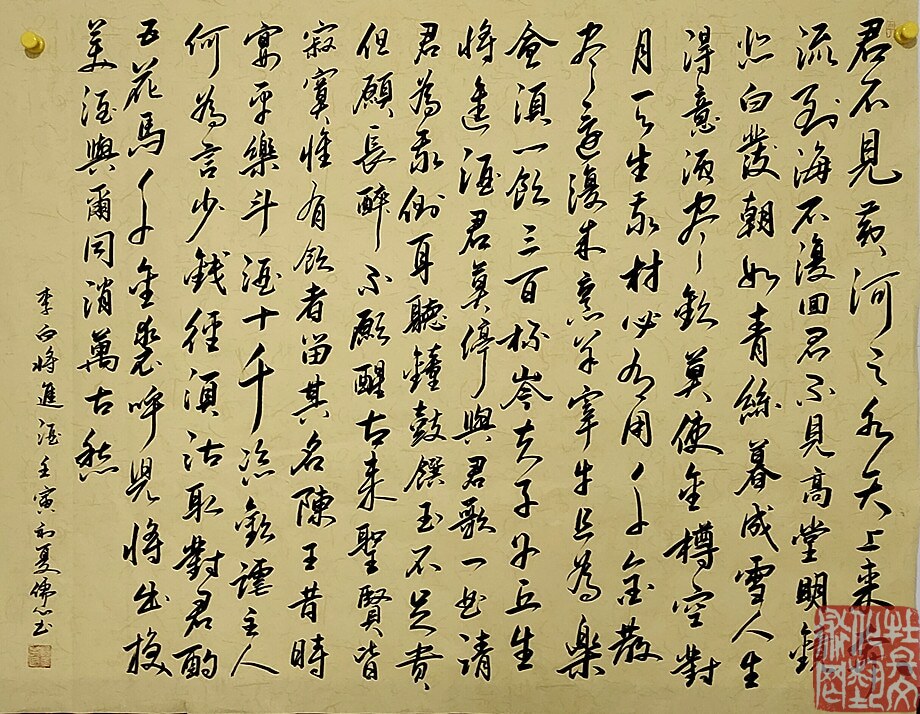 君不見黃河之水天上來奔
流到海不復回君不見高堂明鏡
悲白發朝如青絲暮成雪人生
得意須盡歡莫使金樽空對
月天生我材必有用千金散
盡還復來烹羊宰牛且為樂
會須一飲三百杯岑夫子丹丘生
將進酒君莫停與君歌一曲請
君為我側耳聽鐘鼓饌玉不足貴
但願長醉不願醒古來聖賢皆
寂寞惟有飲者留其名陳王昔時
宴平樂斗酒十千恣歡謔主人
何為言少錢徑須沽取對君酌
五花馬千金裘呼兒將出換
美酒與爾同消萬古愁
李白將進酒壬寅初夏佛心書